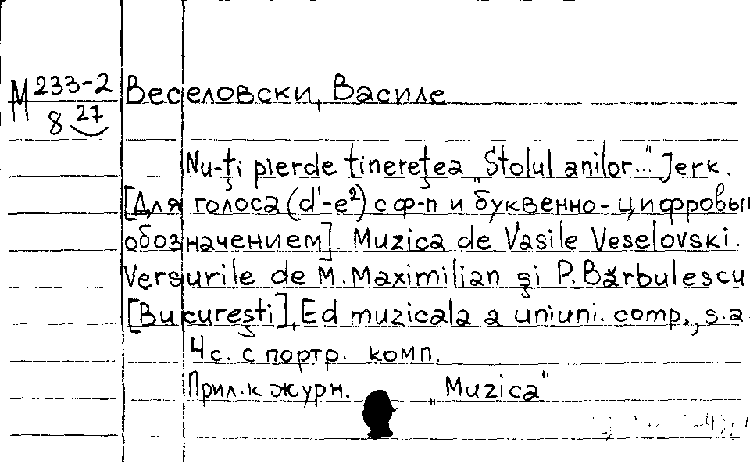 М 233-2
8 27
Веселовски, Василе
Nu-ţi pierde tinereţea "Stolul anilor..." Jerk.
[Для голоса (d'-e²) с ф-п и буквенно-цифровы
обозначением]. Muzica de Vasile Veselovski.
Versurile de M. Maximilian şi P. Bărbulescu
[Bucureşti], Ed muzicala a uniuni. comp., s.a.
4 с. с портр. комп.
Прил. к журн. "Muzica"